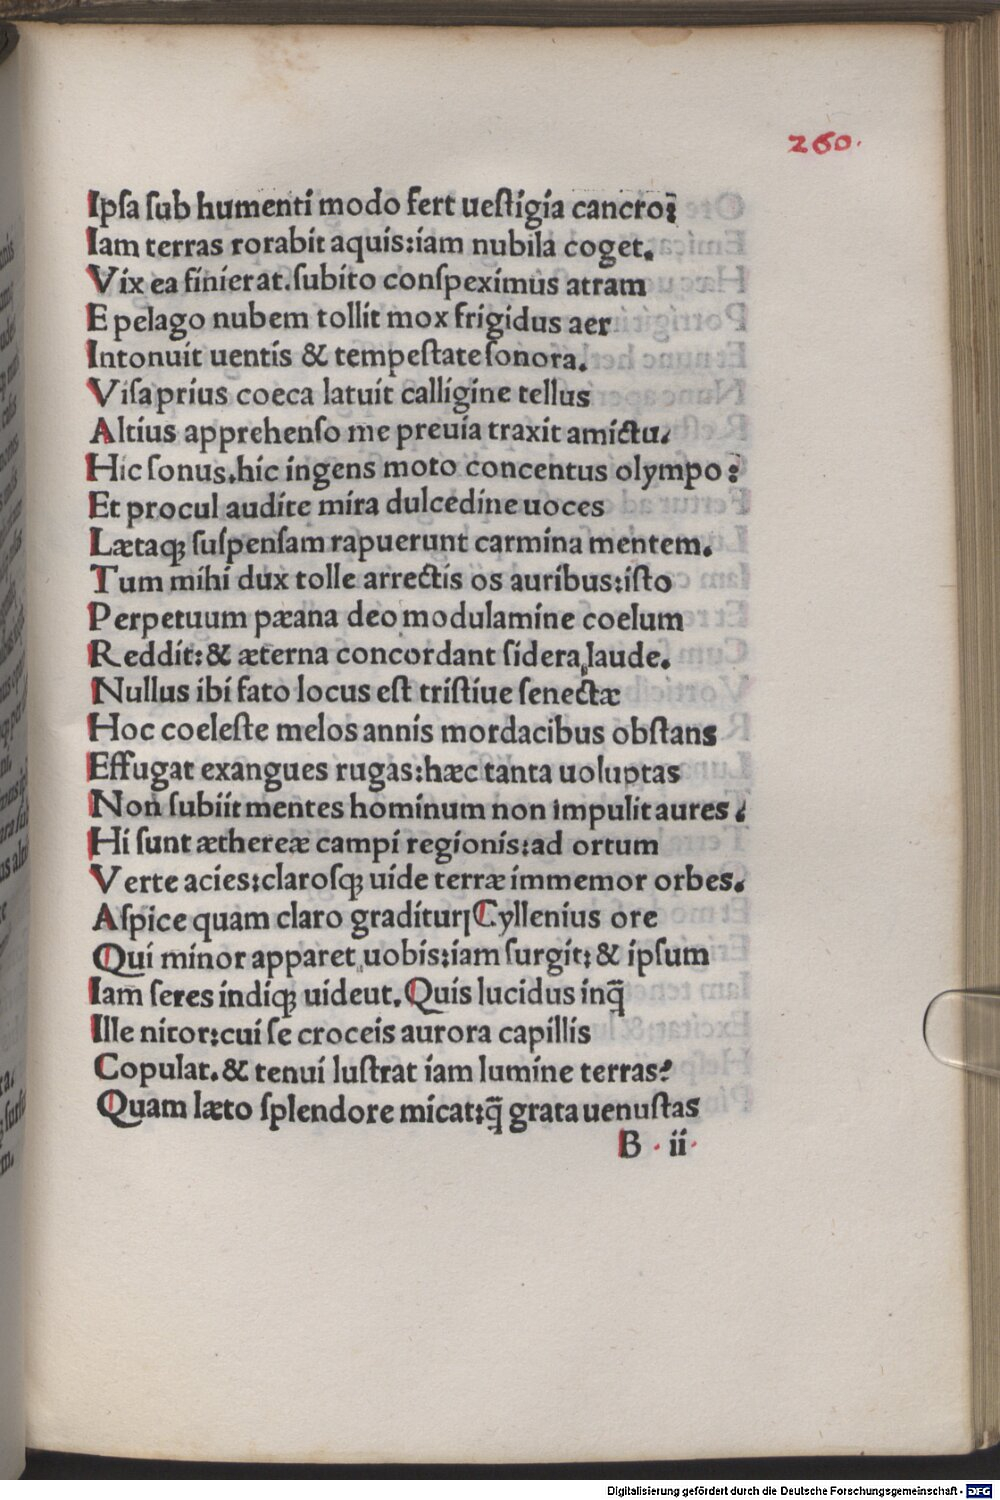 260.
Ipſa ſub humenti modo fert ueſtigia cancro⁏̃
Iam terras rorabit aquis:iam nubila coget.
Vix ea finierat.ſubito conſpeximus atram
E pelago nubem tollit mox frigidus aer
Intonuit uentis & tempeſtate ſonora.
Viſa prius coeca latuit calligine tellus
Altius apprehenſo me preuia traxit amictu.
Hic ſonus.hic ingens moto concentus olympo?
Et procul audite mira dulcedine uoces
Lætaqꝫ ſuſpenſam rapuerunt carmina mentem.
Tum mihi dux tolle arrectis os auribus:iſto
Perpetuum pæana deo modulamine coelum
Reddit:& æterna concordant ſidera laude.
Nullus ibi fato locus eſt triſtiue ſenectæ
Hoc coeleſte melos annis mordacibus obſtans
Effugat exangues rugas:hæc tanta uoluptas
Non ſubiit mentes hominum non impulit aures?
Hi ſunt æthereæ campi regionis:ad ortum
Verte acies:claroſqꝫ uide terræ immemor orbes.
Aſpice quam claro graditur Cyllenius ore
Qui minor apparet uobis:iam ſurgit: & ipſum
Iam ſeres indiqꝫ uideut. Quis lucidus inq̄
Ille nitor:cui ſe croceis aurora capillis
Copulat.& tenui luſtrat iam lumine terras?
Quam læto ſplendore micat:q̄ grata uenuſtas
B ii
Digitalisierung gefördert durch die Deutsche Forschungsgemeinschaft - DFG